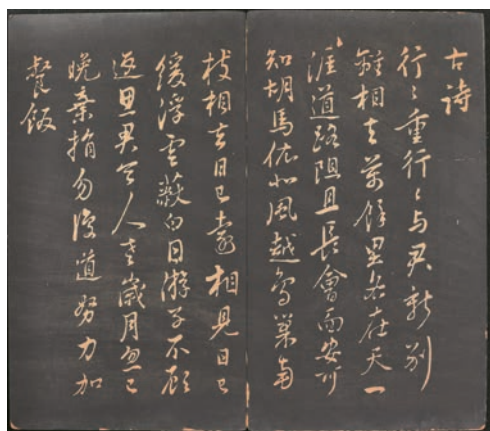 古诗
行〻重行〻与君新别
離相去萬餘里各在天一
涯道路阻且長會面安可
知胡馬依北風越鳥巢南
枝相去日已遠相見日已
緩浮雲蔽白日游子不顧
返思君令人老歲月忽已
晚棄捐勿復道努力加
餐飯